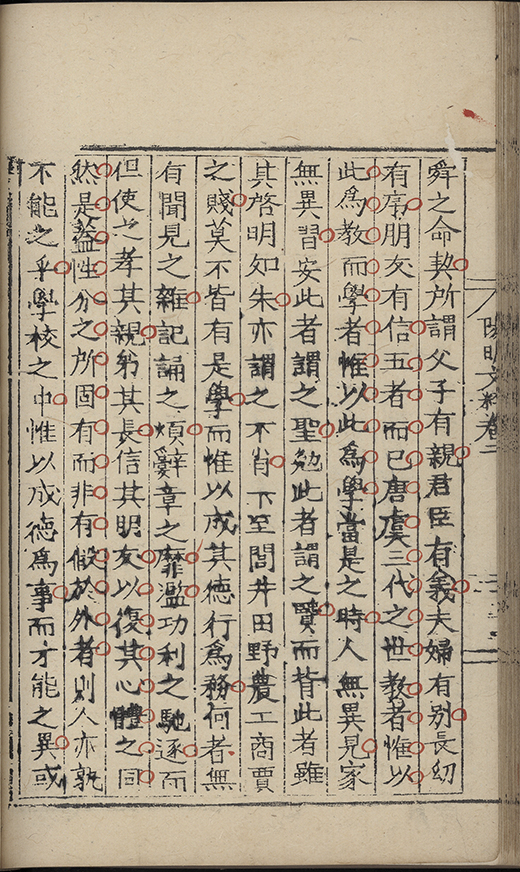 陽明文粹卷二
舜之命契所謂父子有親君臣有義夫婦有別長幼
有序朋友有信五者而已唐虞三代之世教者惟以
此為教而學者惟以此為學當是之時人無異見家
無異習安此者謂之聖勉此者謂之賢而背此者雖
其啓明如朱亦謂之不肖下至閭井田野農工商賈
之賤莫不皆有是學而惟以成其德行為務何者無
有聞見之雜記誦之煩辭章之靡濫功利之馳逐而
但使之孝其親弟其長信其朋友以復其心體之同
然是蓋性分之所固有而非有假於外者則人亦孰
不能之乎學校之中惟以成德為事而才能之異或